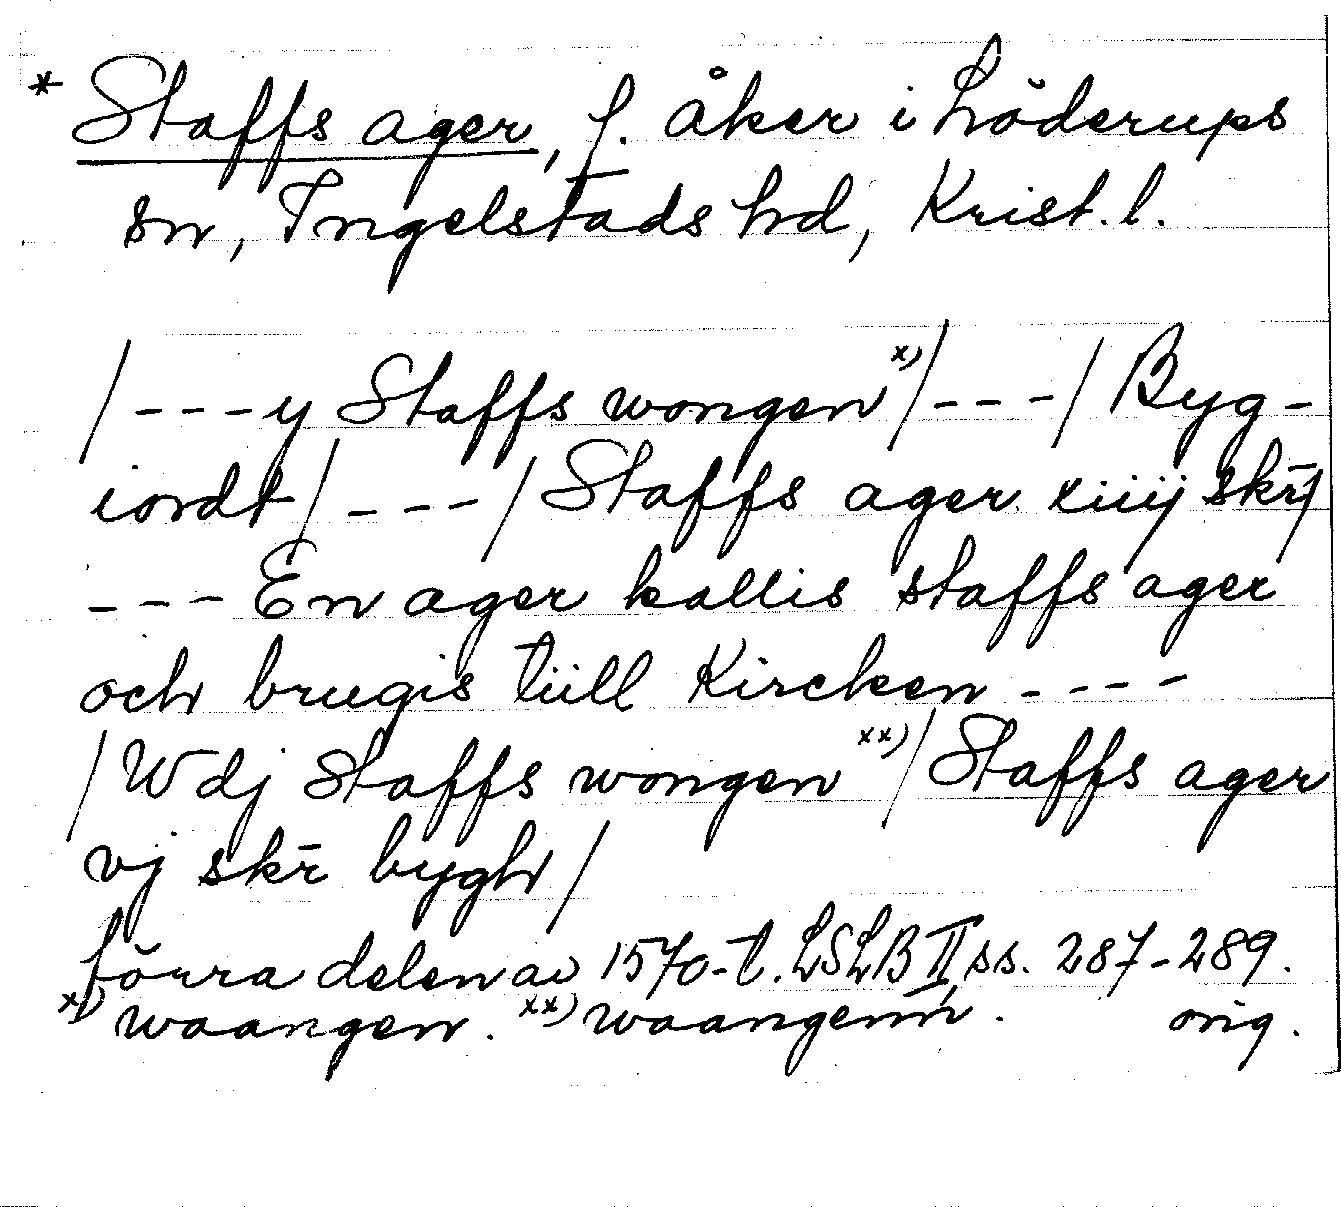 * Staffs ager, f. åker i Löderups
sn, Ingelstads hd, Krist. l.
/---y Staffs wongen x)/---/ Byg-
iordt/---/Staffs ager xiiij skr̄/
--- En ager kallis staffs ager
och brugis tiill Kircken ----
/Wdj Staffs wongen xx)/Staffs ager
vj skr̄ bygh/
förra delen av 1570-t. LSLB II, ss. 287-289.
x) waangen. xx) waangenn. orig.